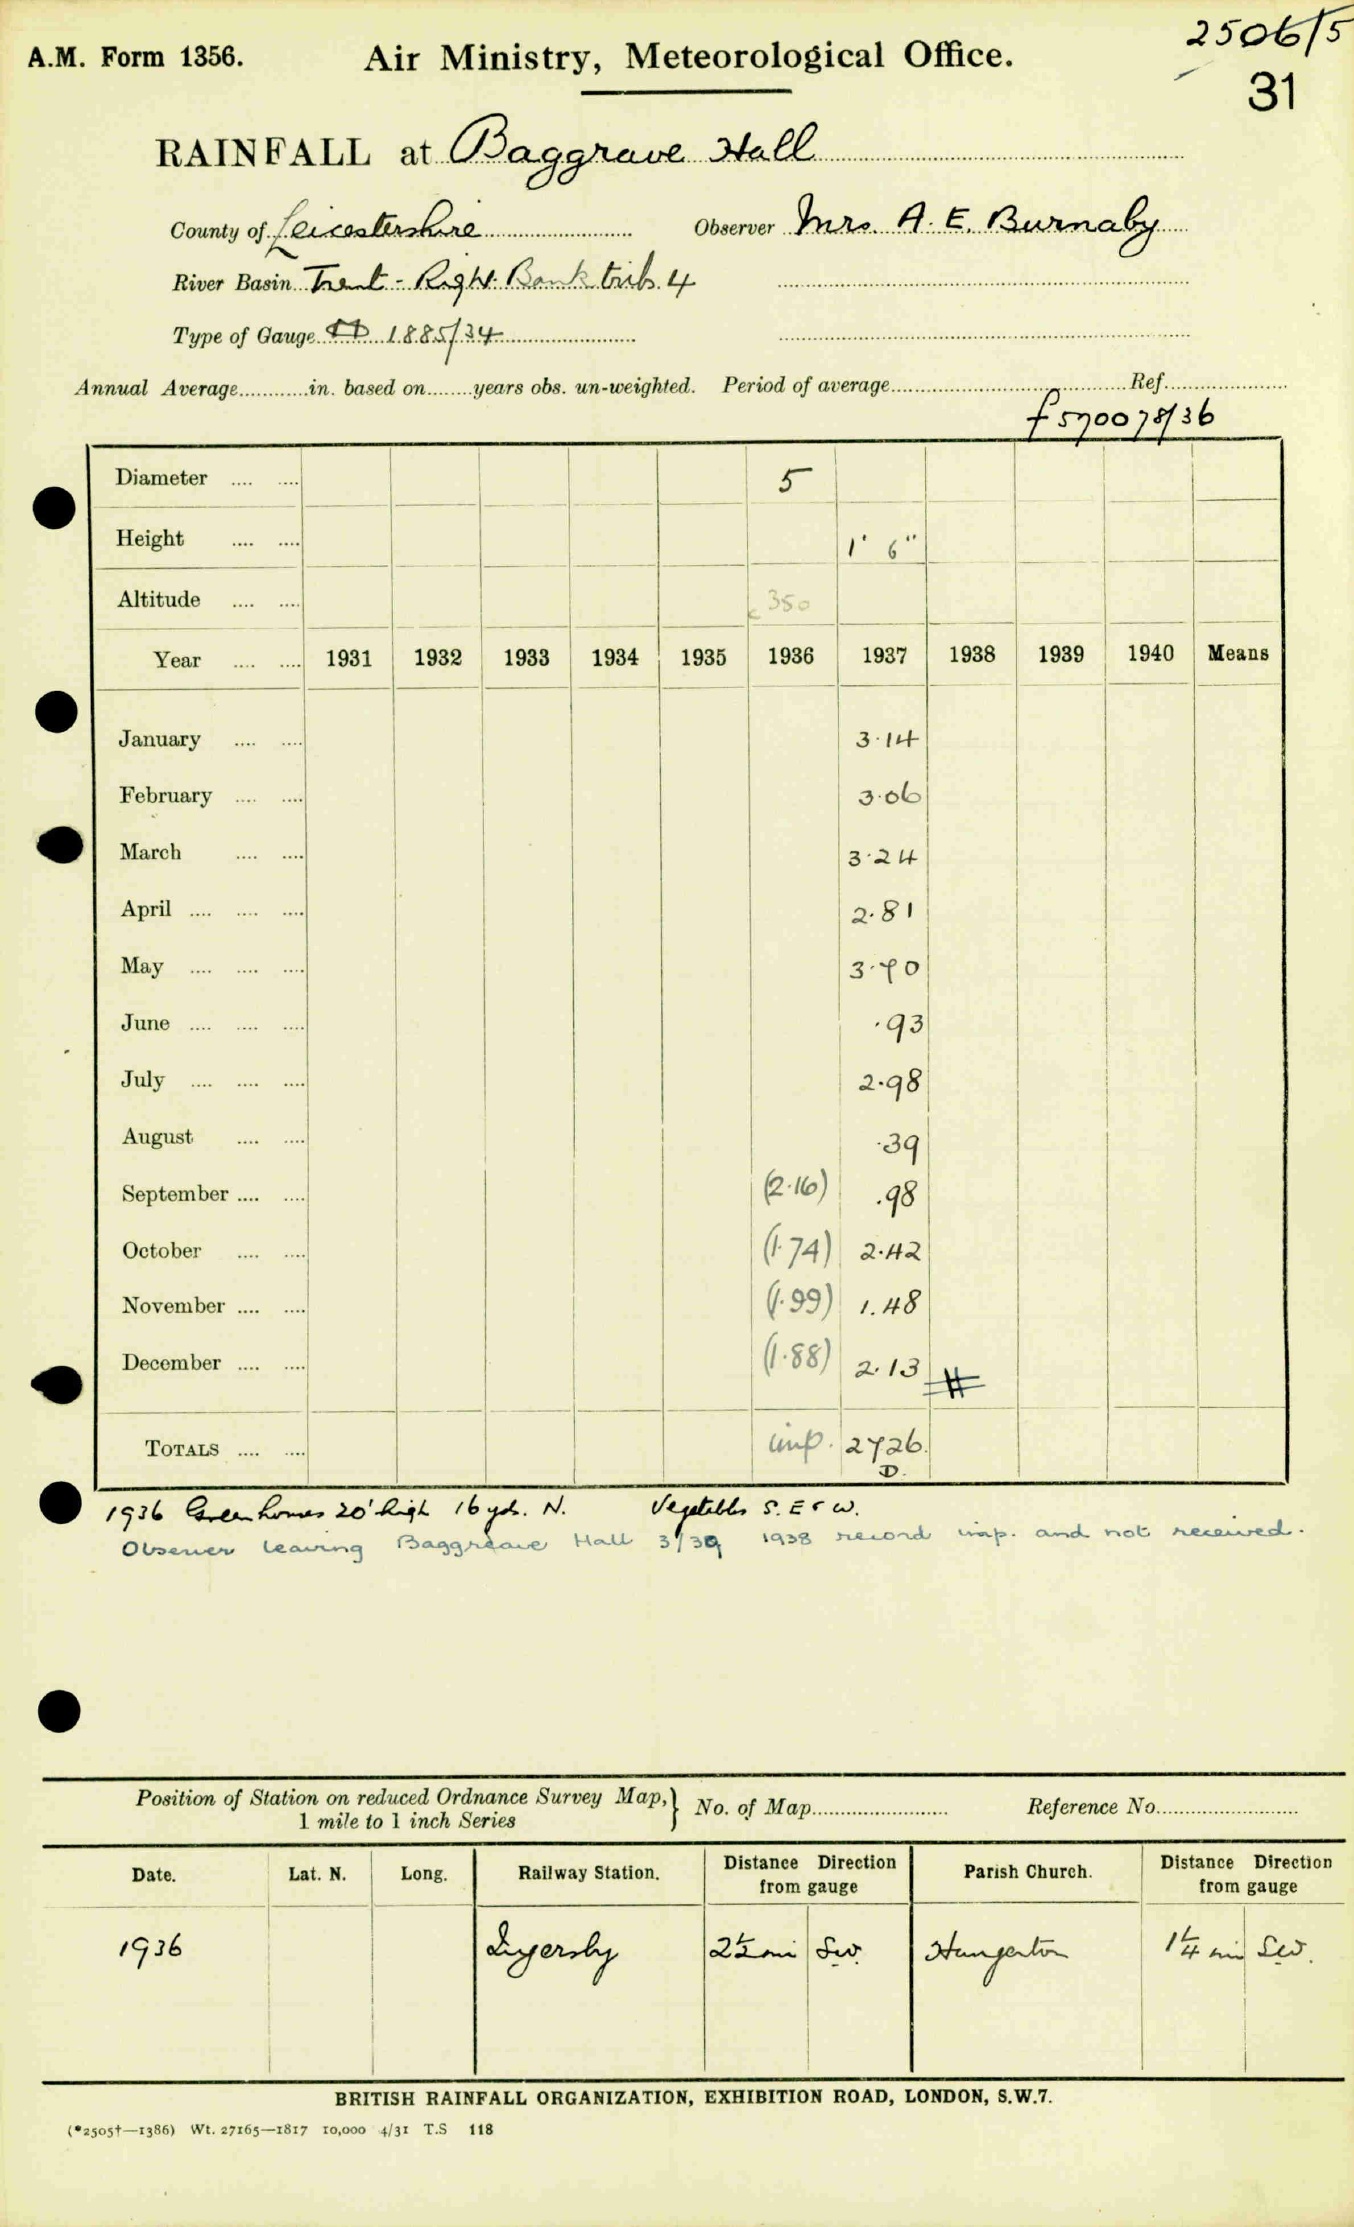 2506/5
A.M. Form 1356. Air Ministry, Meteorological Office.
31
RAINFALL at Baggrave Hall
County of Leicestershire Observer Mrs. A. E. Burnaby
River Basin Trent - Right Bank tribs. 4
Type of Gauge 1885/34
Annual Average............in. based on........years obs. un-weighted. Period of average........................................Ref.....................
f 570078/36
Diameter .... .... 5
Height .... .... 1' 6"
Altitude .... .... c 350
Year .... .... 1931 1932 1933 1934 1935 1936 1937 1938 1939 1940 Means
January .... .... 3.14
February .... .... 3.06
March .... .... 3.24
April .... .... .... 2.81
May .... .... .... 3.70
June .... .... .... .93
July .... .... .... 2.98
August .... .... .39
September .... .... (2.16) .98
October .... .... (1.74) 2.42
November .... .... (1.99) 1.48
December .... .... (1.88) 2.13
TOTALS .... .... imp. 27.26
D.
1936 Greenhouses 20' high 16 yds. N. Vegetables S. E & W.
Observer leaving Baggrave Hall 3/39 1938 record imp. and not received.
Position of Station on reduced Ordnance Survey Map,} No. of Map........................ Reference No.........................
1 mile to 1 inch Series
Date. Lat. N. Long. Railway Station. Distance Direction from gauge Parish Church. Distance Direction from gauge
1936 Ingersby 2½ mi SW. Hungerton 1¼ mi SW.
BRITISH RAINFALL ORGANIZATION, EXHIBITION ROAD, LONDON, S.W.7.
(*2505†—1386) Wt. 27165—1817 10,000 4/31 T.S 118